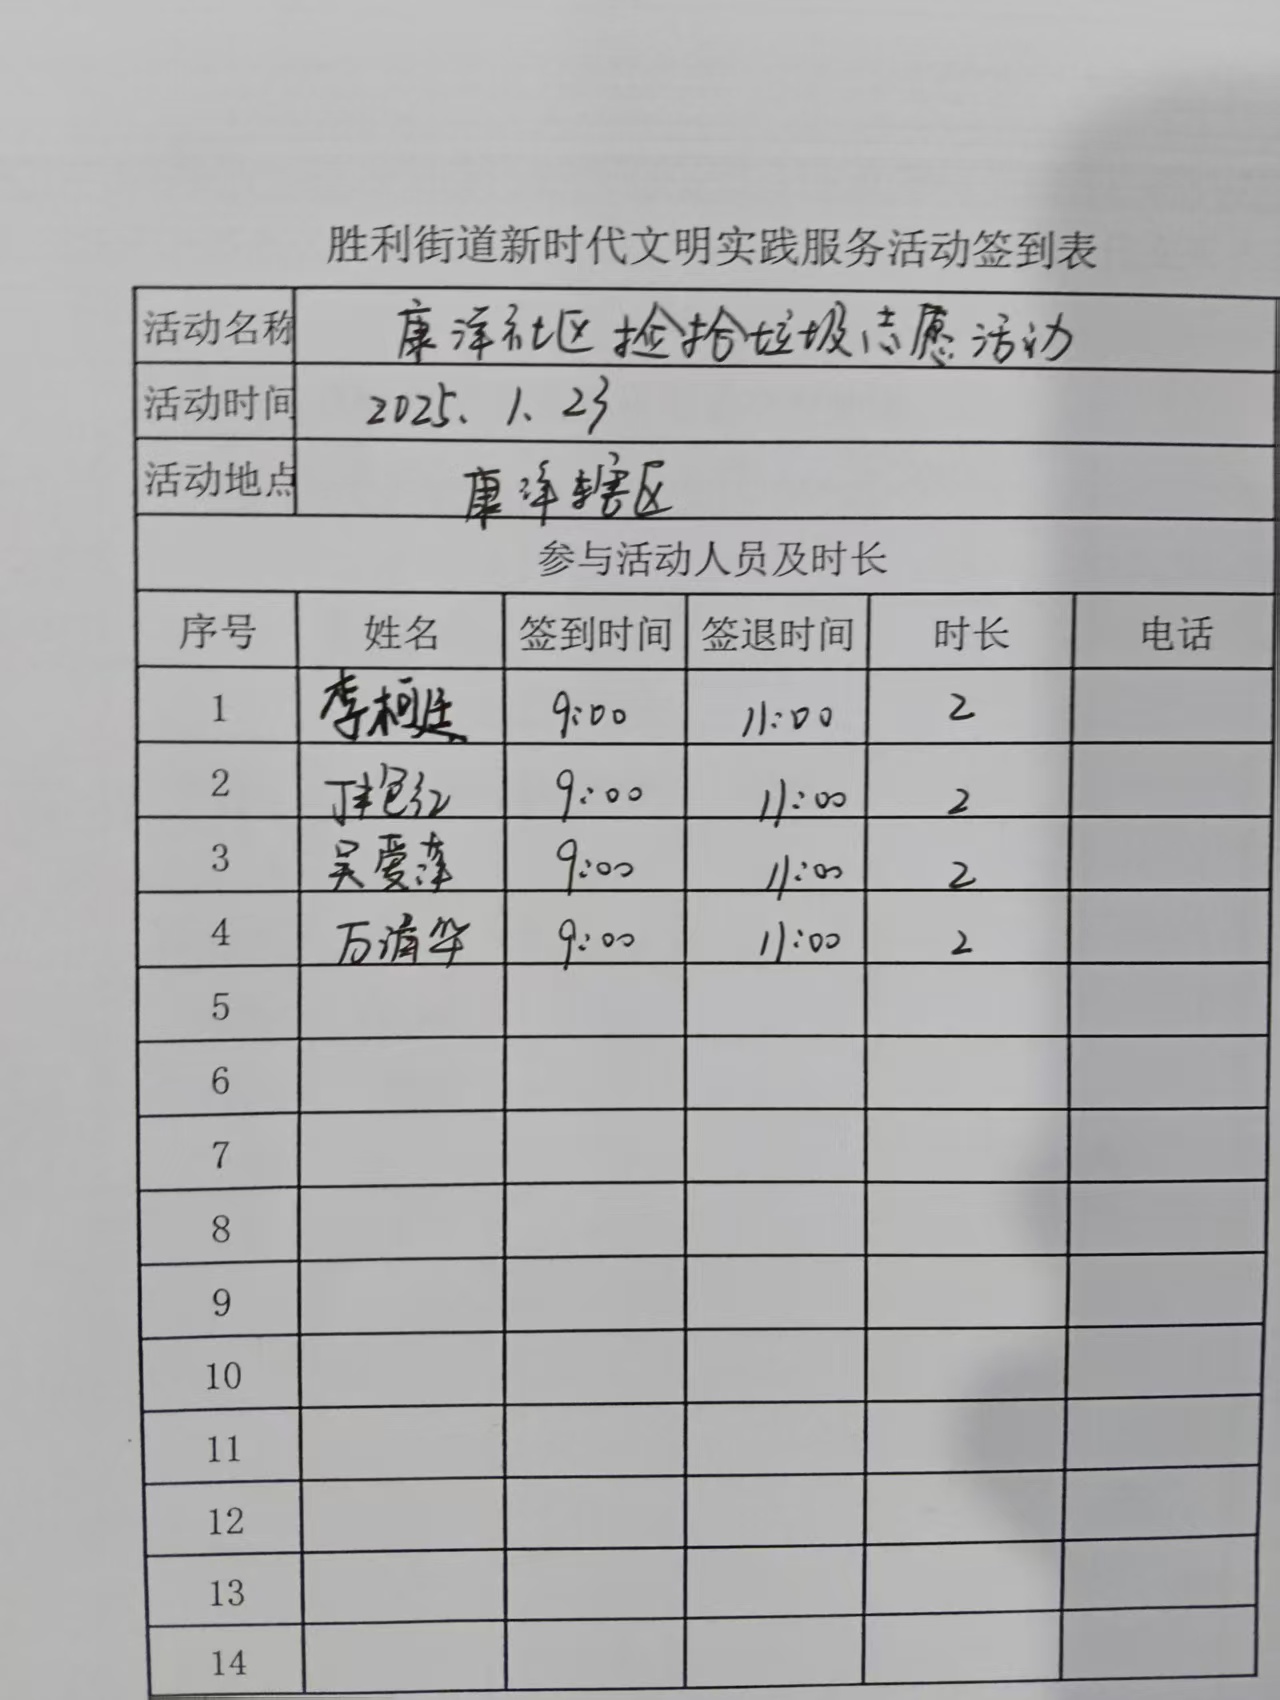 胜利街道新时代文明实践服务活动签到表
活动名称 康洋社区捡拾垃圾志愿活动
活动时间 2025.1.23
活动地点 康洋辖区
参与活动人员及时长
序号 姓名 签到时间 签退时间 时长 电话
1 李柯廷 9:00 11:00 2
2 9:00 11:00 2
3 吴爱萍 9:00 11:00 2
4 万清华 9:00 11:00 2
5
6
7
8
9
10
11
12
13
14